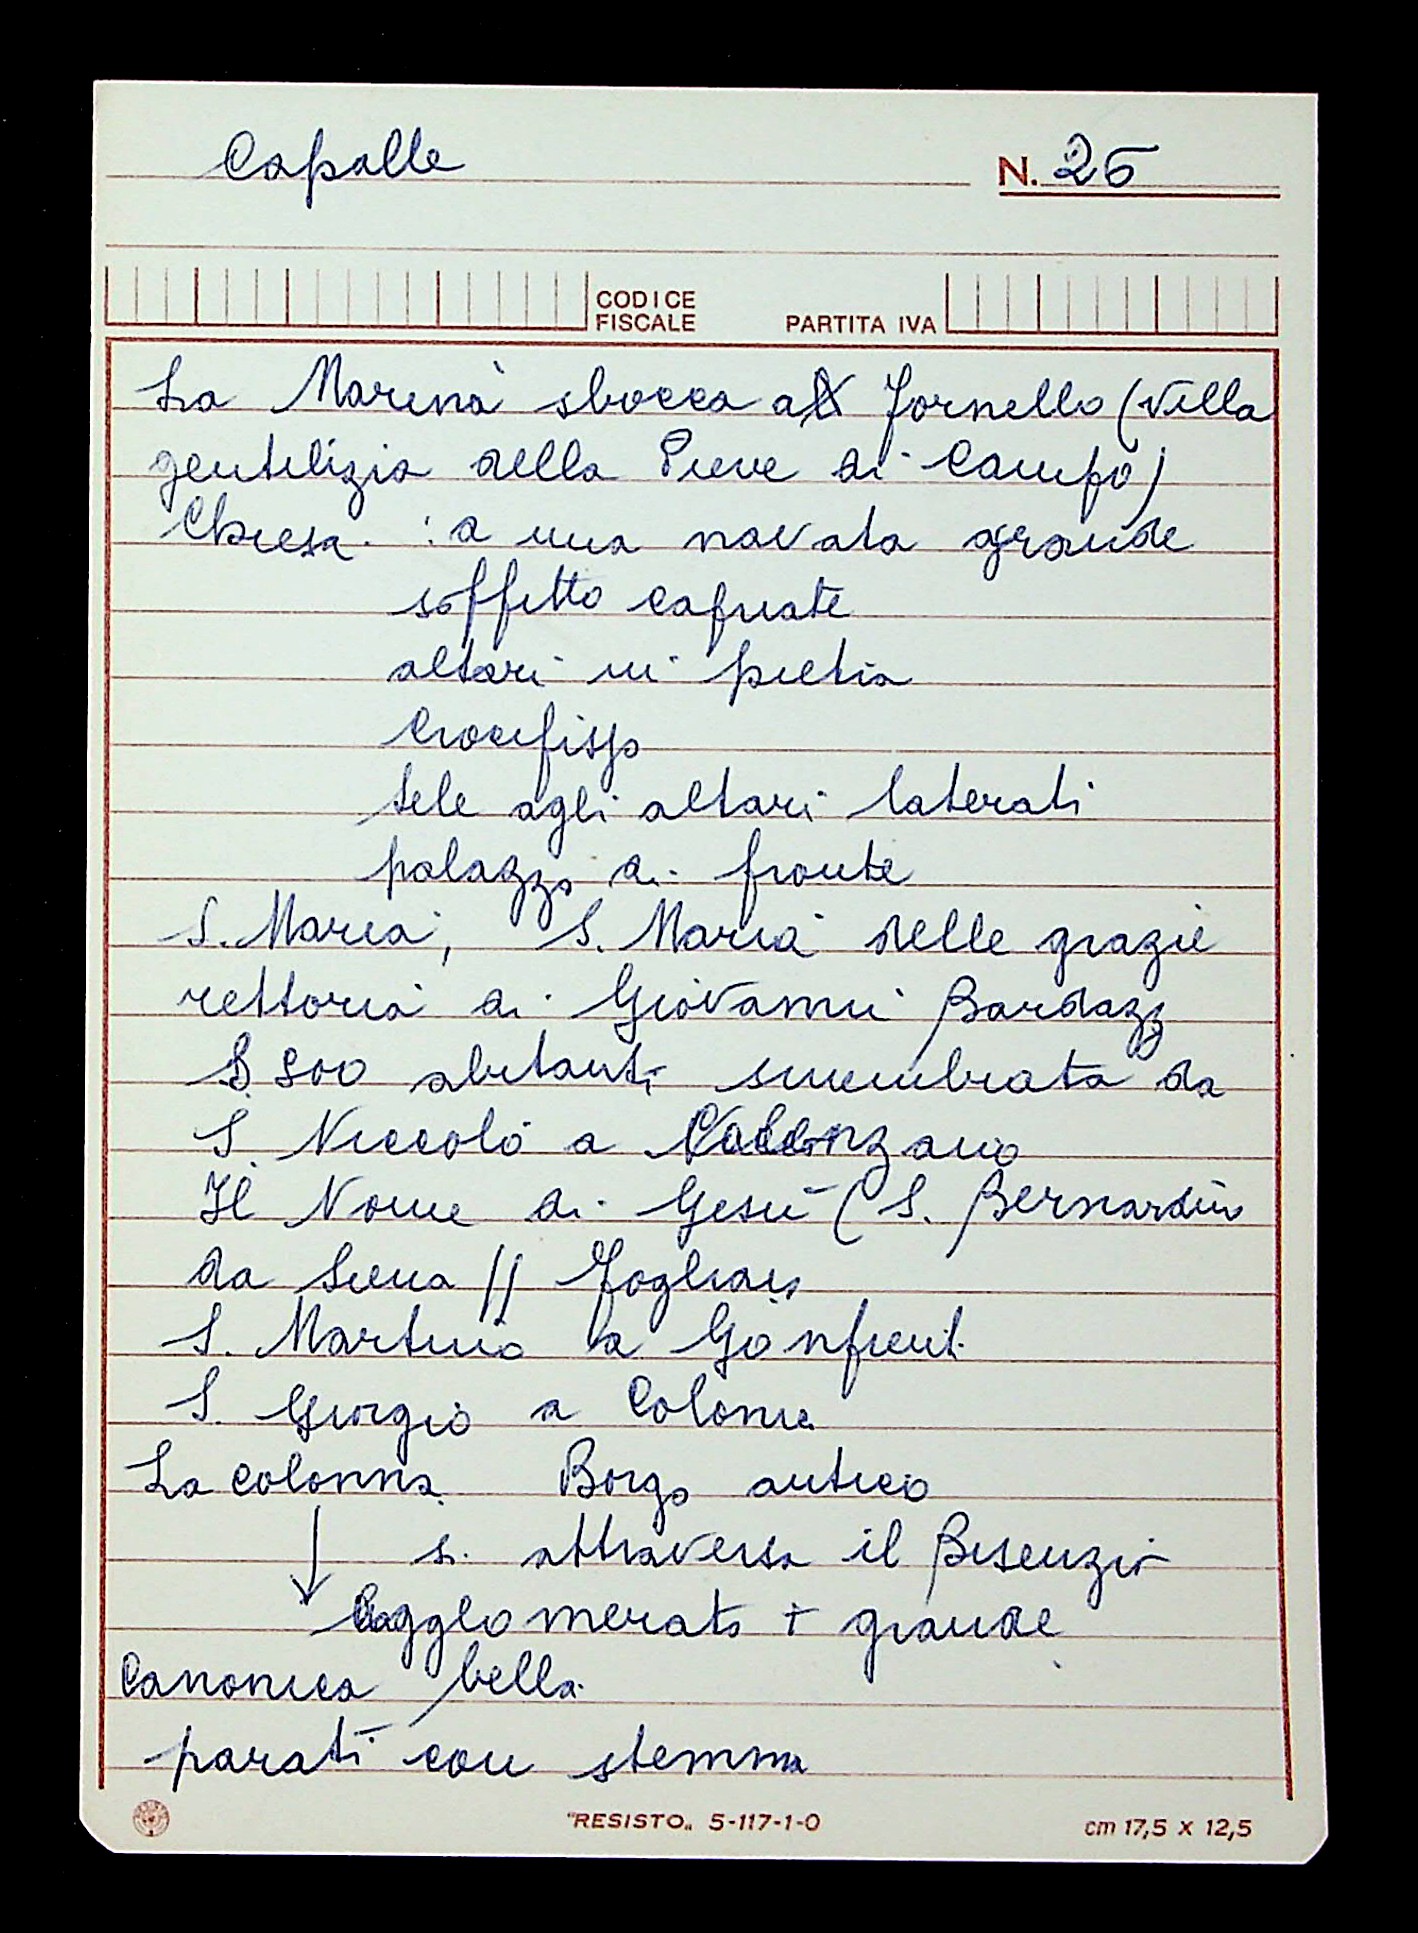 Capalle N. 25
CODICE
FISCALE PARTITA IVA
La Marina sbocca al Fornello (Villa
gentilizia della Pieve di Campo)
Chiesa : a una navata grande
soffitto capriate
altari in pietra
Crocifisso
tele agli altari laterali
palazzo di fronte
S. Maria, S. Maria delle grazie
rettoria di Giovanni Bardazzi
abitanti smembrata da
S. Niccolò a Calenzano
Il Nome di Gesù (S. Bernardino
da Siena // Fogliaio
S. Martino a Gonfienti
S. Giorgio a Colonica
La colonna Borgo antico
↓ si attraversa il Bisenzio
agglomerato + grande
Canonica bella
parati con stemma
"RESISTO„ 5-117-1-0 cm 17,5 x 12,5